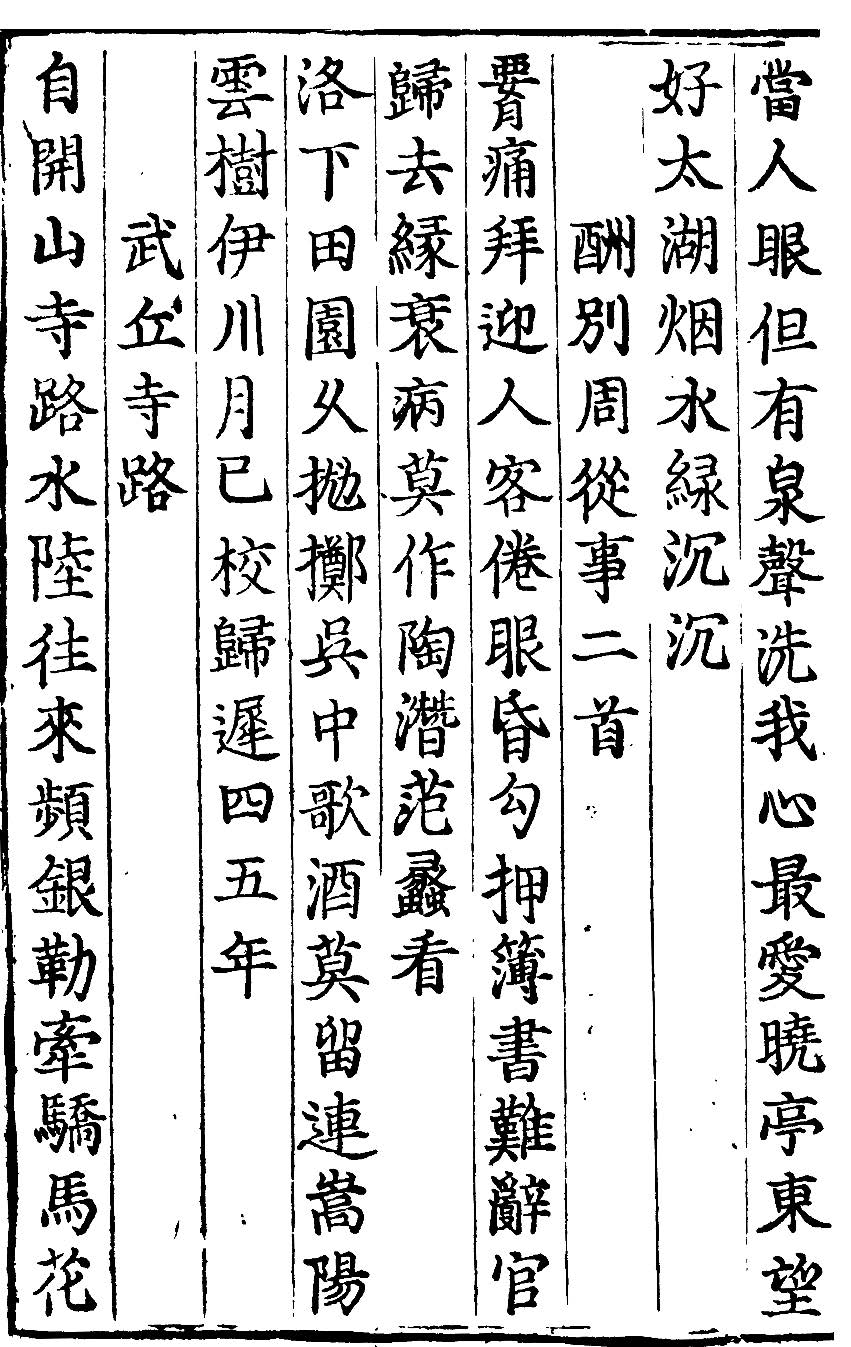 當人眼但有泉聲洗我心最愛曉亭東望
好太湖烟水緑沉沉
酬別周從事二首
𦝫痛拜迎人客倦眼昏勾押簿書難辭官
歸去緣衰病莫作陶潛范蠡看
洛下田園乆拋擲吳中歌酒莫留連嵩陽
雲樹伊川月已校歸遲四五年
武丘寺路
自開山寺路水陸往來頻銀勒牽驕馬花